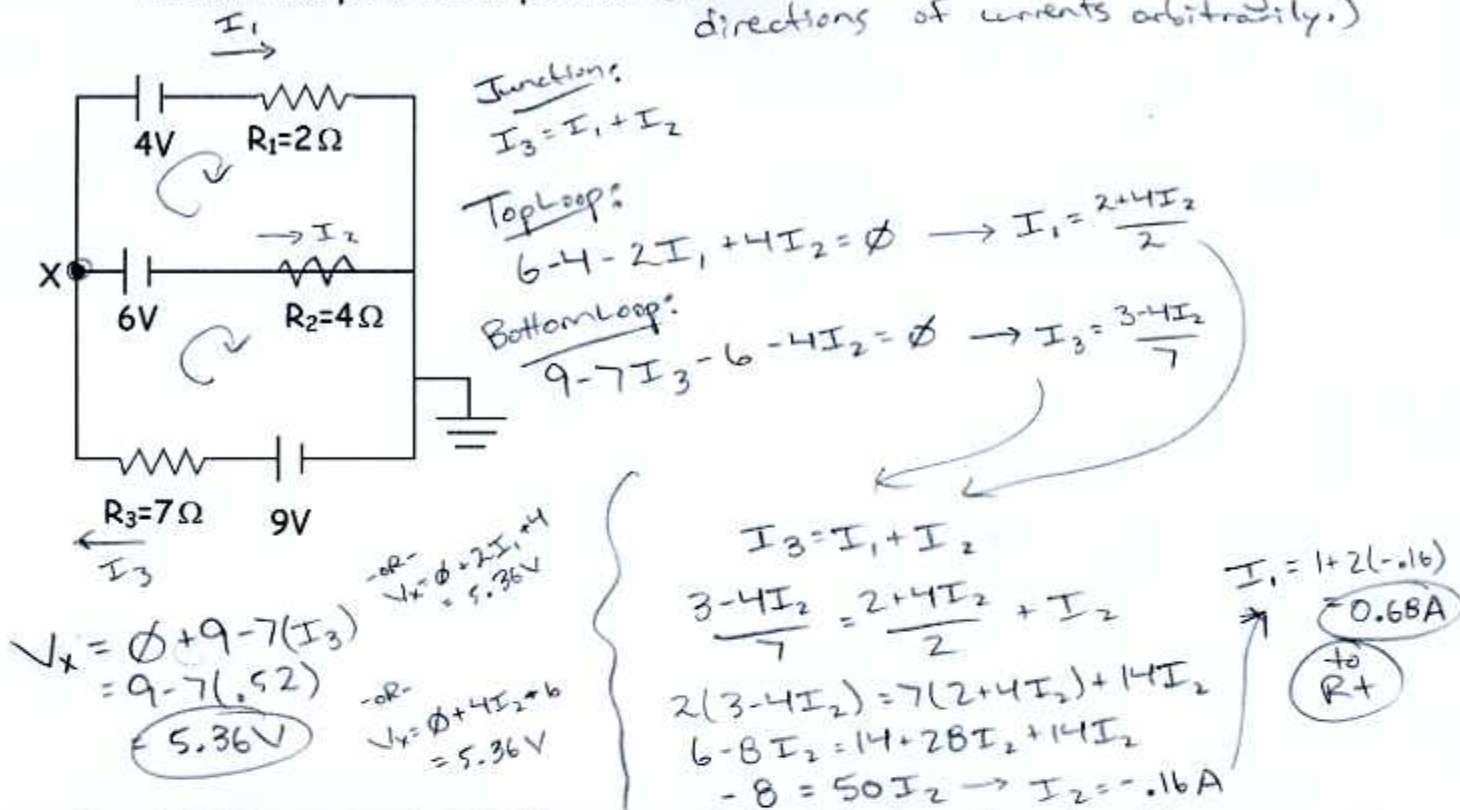 directions of currents arbitrarily.)
I₁
4V
R₁=2Ω
→ I₂
X
6V
R₂=4Ω
R₃=7Ω
9V
I₃
Junction:
I₃ = I₁ + I₂
Top Loop:
6-4-2I₁+4I₂=∅ → I₁ = (2+4I₂)/2
Bottom Loop:
9-7I₃-6-4I₂=∅ → I₃ = (3-4I₂)/7
I₃ = I₁ + I₂
(3-4I₂)/7 = (2+4I₂)/2 + I₂
2(3-4I₂) = 7(2+4I₂) + 14I₂
6-8I₂ = 14+28I₂+14I₂
-8 = 50I₂ → I₂ = -.16A
I₁ = 1+2(-.16)
= 0.68A
to
Rt
Vx = ∅+9-7(I₃)
= 9-7(.52)
= 5.36V
-OR-
Vx = ∅+2I₁+4
= 5.36V
-OR-
Vx = ∅+4I₂+6
= 5.36V